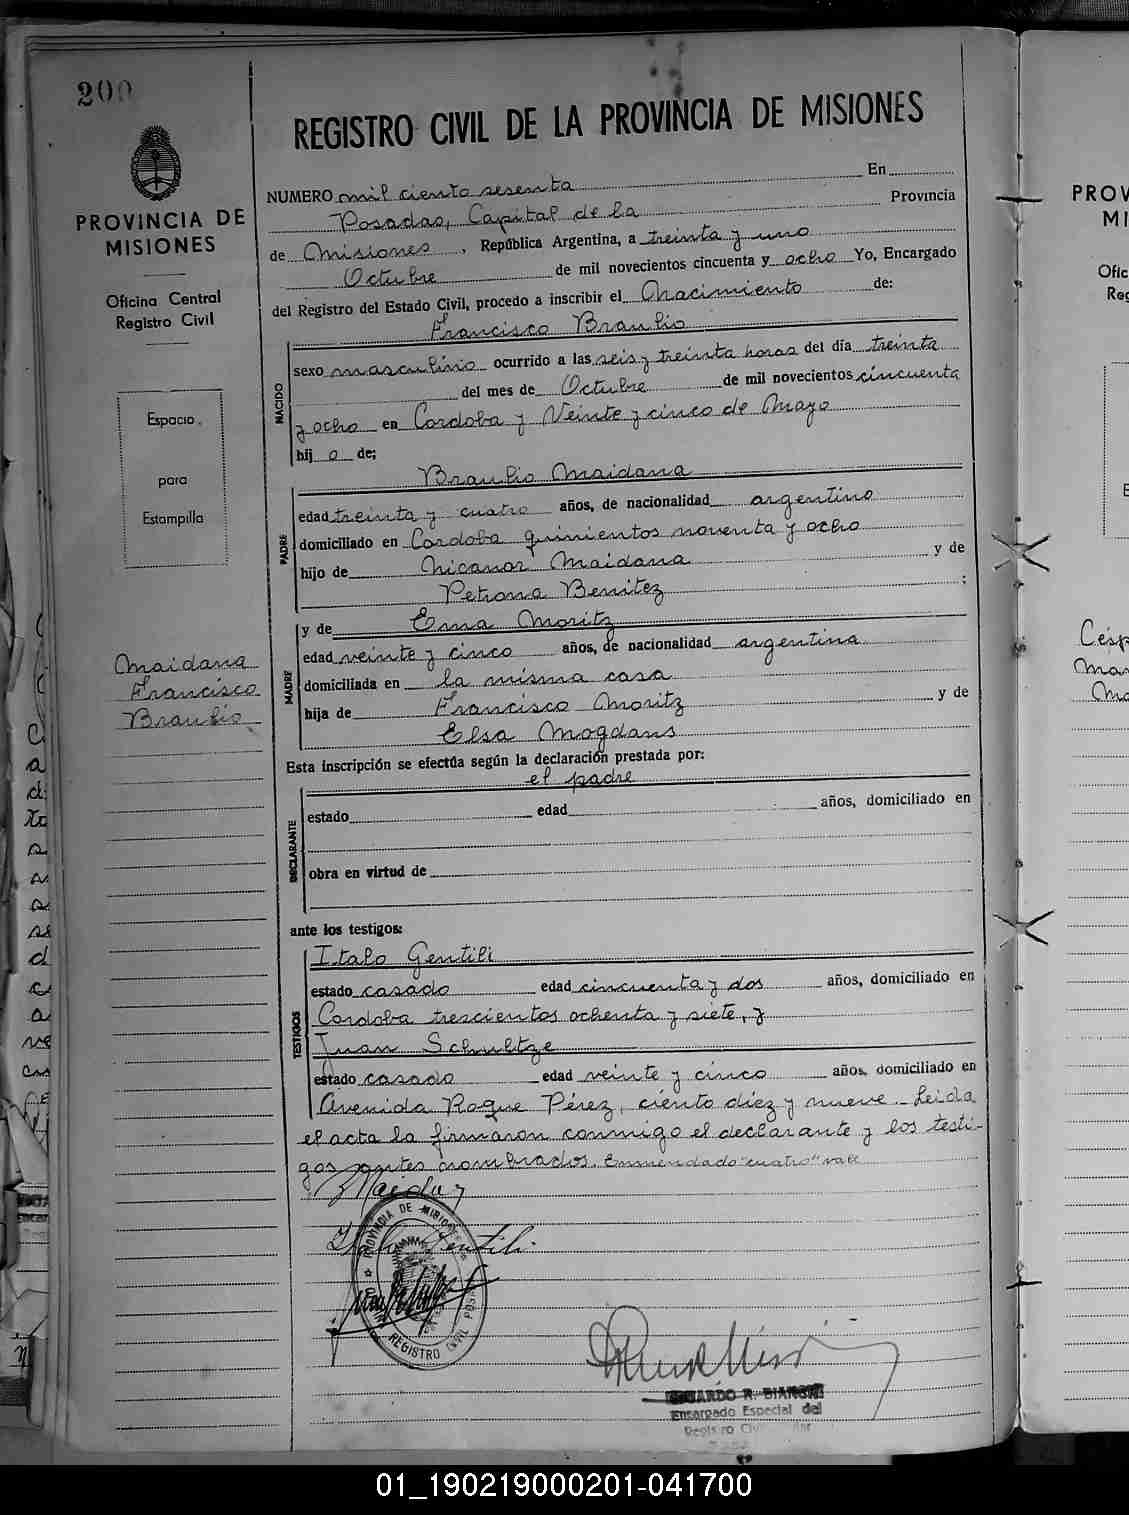 200
PROVINCIA DE
MISIONES
Oficina Central
Registro Civil
Espacio
para
Estampilla
Maidana
Francisco
Braulio
REGISTRO CIVIL DE LA PROVINCIA DE MISIONES
NUMERO mil ciento sesenta En
Posadas, Capital de la Provincia
de Misiones, República Argentina, a treinta y uno
Octubre de mil novecientos cincuenta y ocho Yo, Encargado
del Registro del Estado Civil, procedo a inscribir el Nacimiento de:
Francisco Braulio
NACIDO
sexo masculino ocurrido a las seis y treinta horas del día treinta
del mes de Octubre de mil novecientos cincuenta
y ocho en Cordoba y Veinte y cinco de Mayo
hij o de;
Braulio Maidana
PADRE
edad treinta y cuatro años, de nacionalidad argentino
domiciliado en Cordoba quinientos noventa y ocho
hijo de Nicanor Maidana y de
Petrona Benitez ;
y de Ema Moritz
MADRE
edad veinte y cinco años, de nacionalidad argentina
domiciliada en la misma casa
hija de Francisco Moritz y de
Elsa Mogdans
Esta inscripción se efectúa según la declaración prestada por:
el padre
DECLARANTE
estado edad años, domiciliado en
obra en virtud de
ante los testigos:
TESTIGOS
Italo Gentili
estado casado edad cincuenta y dos años, domiciliado en
Cordoba trescientos ochenta y siete, y
Juan Schultze
estado casado edad veinte y cinco años, domiciliado en
Avenida Roque Pérez, ciento diez y nueve.- Leida
el acta la firmaron conmigo el declarante y los testi-
gos antes nombrados. Enmendado "cuatro" vale
Italo Gentili.
PROVINCIA DE MISIONES
REGISTRO CIVIL
EDUARDO R. BIANCHI
Encargado Especial del
Registro
01_190219000201-041700